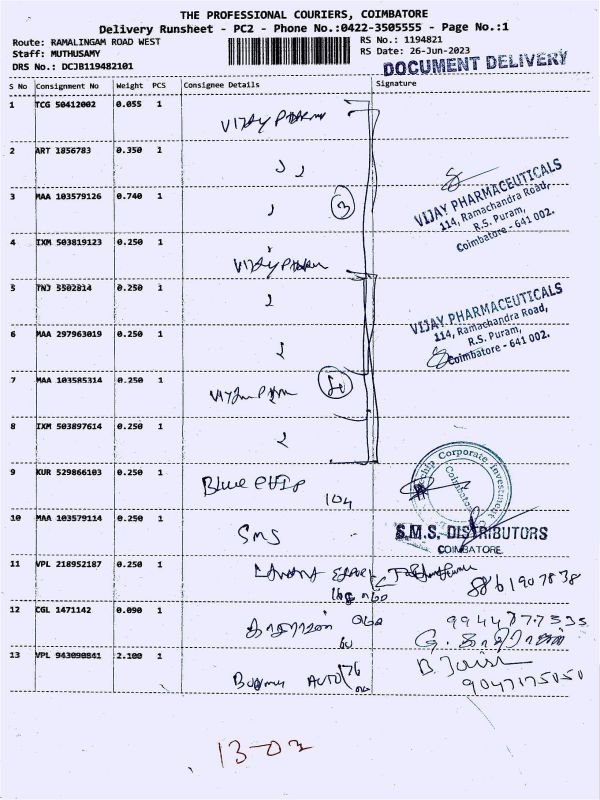 THE PROFESSIONAL COURIERS, COIMBATORE
Delivery Runsheet - PC2 - Phone No.:0422-3505555 - Page No.:1
Route: RAMALINGAM ROAD WEST
RS No.: 1194821
Staff: MUTHUSAMY
RS Date: 26-Jun-2023
DRS No.: DCJB119482101
DOCUMENT DELIVERY
S No Consignment No Weight PCS Consignee Details Signature
1 TCG 50412002 0.055 1 VIJAY PHARMA
2 ART 1856783 0.350 1
3 MAA 103579126 0.740 1 3
VIJAY PHARMACEUTICALS
114, Ramachandra Road,
R.S. Puram,
Coimbatore - 641 002.
4 IXM 503819123 0.250 1 VIJAY PHARMA
5 TNJ 5502814 0.250 1
6 MAA 297963019 0.250 1
VIJAY PHARMACEUTICALS
114, Ramachandra Road,
R.S. Puram,
Coimbatore - 641 002.
7 MAA 103585314 0.250 1
8 IXM 503897614 0.250 1
9 KUR 529866103 0.250 1 Blue Chip 104
Corporate Investment
Coimbatore
10 MAA 103579114 0.250 1 SMS
S.M.S. DISTRIBUTORS
COIMBATORE
11 VPL 218952187 0.250 1 8861907838
12 CGL 1471142 0.090 1
13 VPL 943090841 2.100 1 AUTO
9047175050
13-03